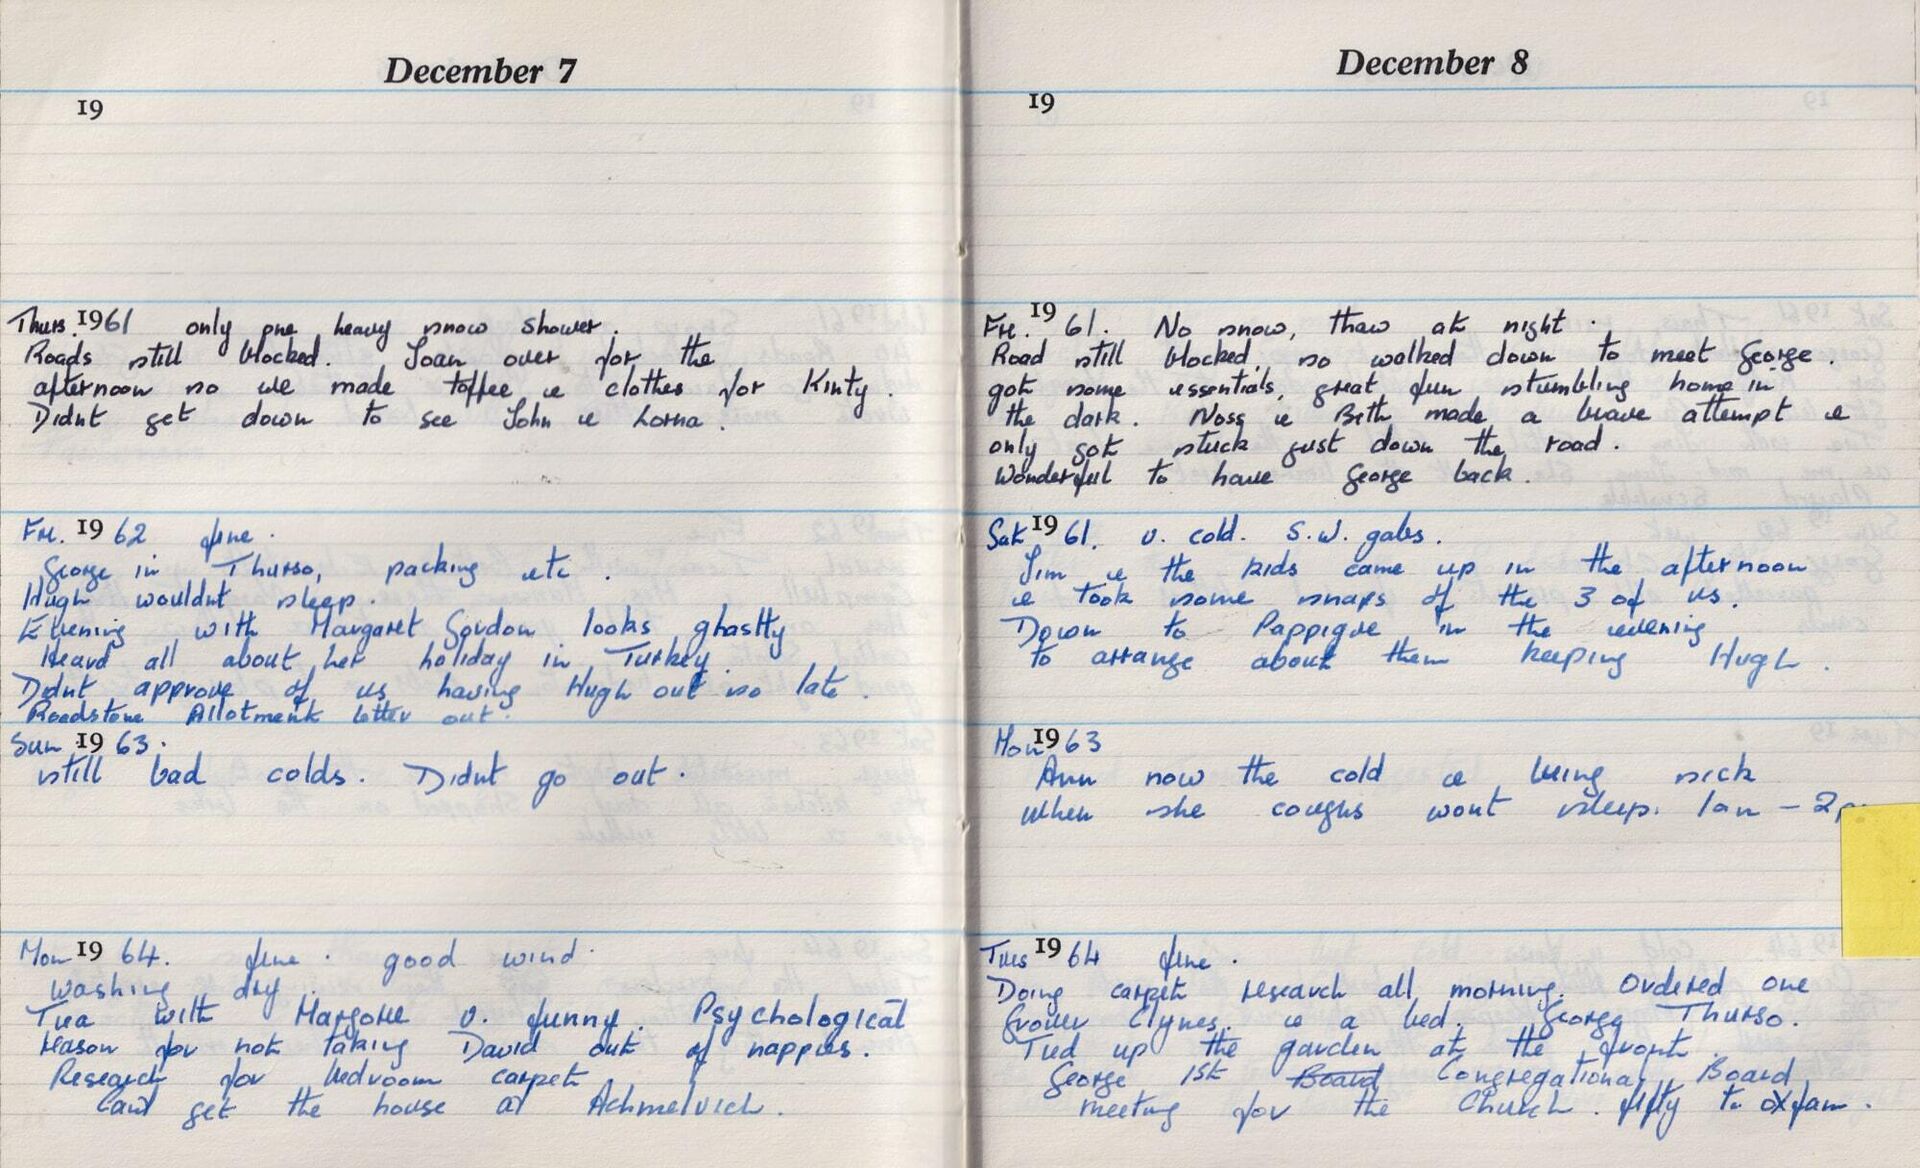 December 7
19
Thurs. 1961 only one heavy snow shower.
Roads still blocked. Joan over for the
afternoon so we made toffee & clothes for Kinty.
Didnt get down to see John & Lorna.
Fri. 1962 fine.
George in Thurso, packing etc.
Hugh wouldnt sleep.
Evening with Margaret Gordon looks ghastly
Heard all about her holiday in Turkey.
Didnt approve of us having Hugh out so late.
Roadstone Allotment letter out.
Sun 1963.
still bad colds. Didnt go out.
Mon 1964. fine. good wind.
washing dry.
Tea with Marjorie v. funny. Psychological
reason for not taking David out of nappies.
Research for bedroom carpet
Cant get the house at Achmelvich.
December 8
19
Fri. 1961. No snow, thaw at night.
Road still blocked, so walked down to meet George.
got some essentials, great fun stumbling home in
the dark. Noss & Beth made a brave attempt &
only got stuck just down the road.
Wonderful to have George back.
Sat 1961. v. cold. S.W. gales.
Jim & the kids came up in the afternoon
& took some snaps of the 3 of us.
Down to in the evening
to arrange about them keeping Hugh.
Mon 1963
Ann now the cold & being sick
when she coughs wont sleep. 1am - 2
Tues 1964 fine.
Doing carpet research all morning. Ordered one
Clynes. & a bed. George Thurso.
Tied up the garden at the front.
George 1st Board Congregational Board
meeting for the Church. fifty to oxfam.